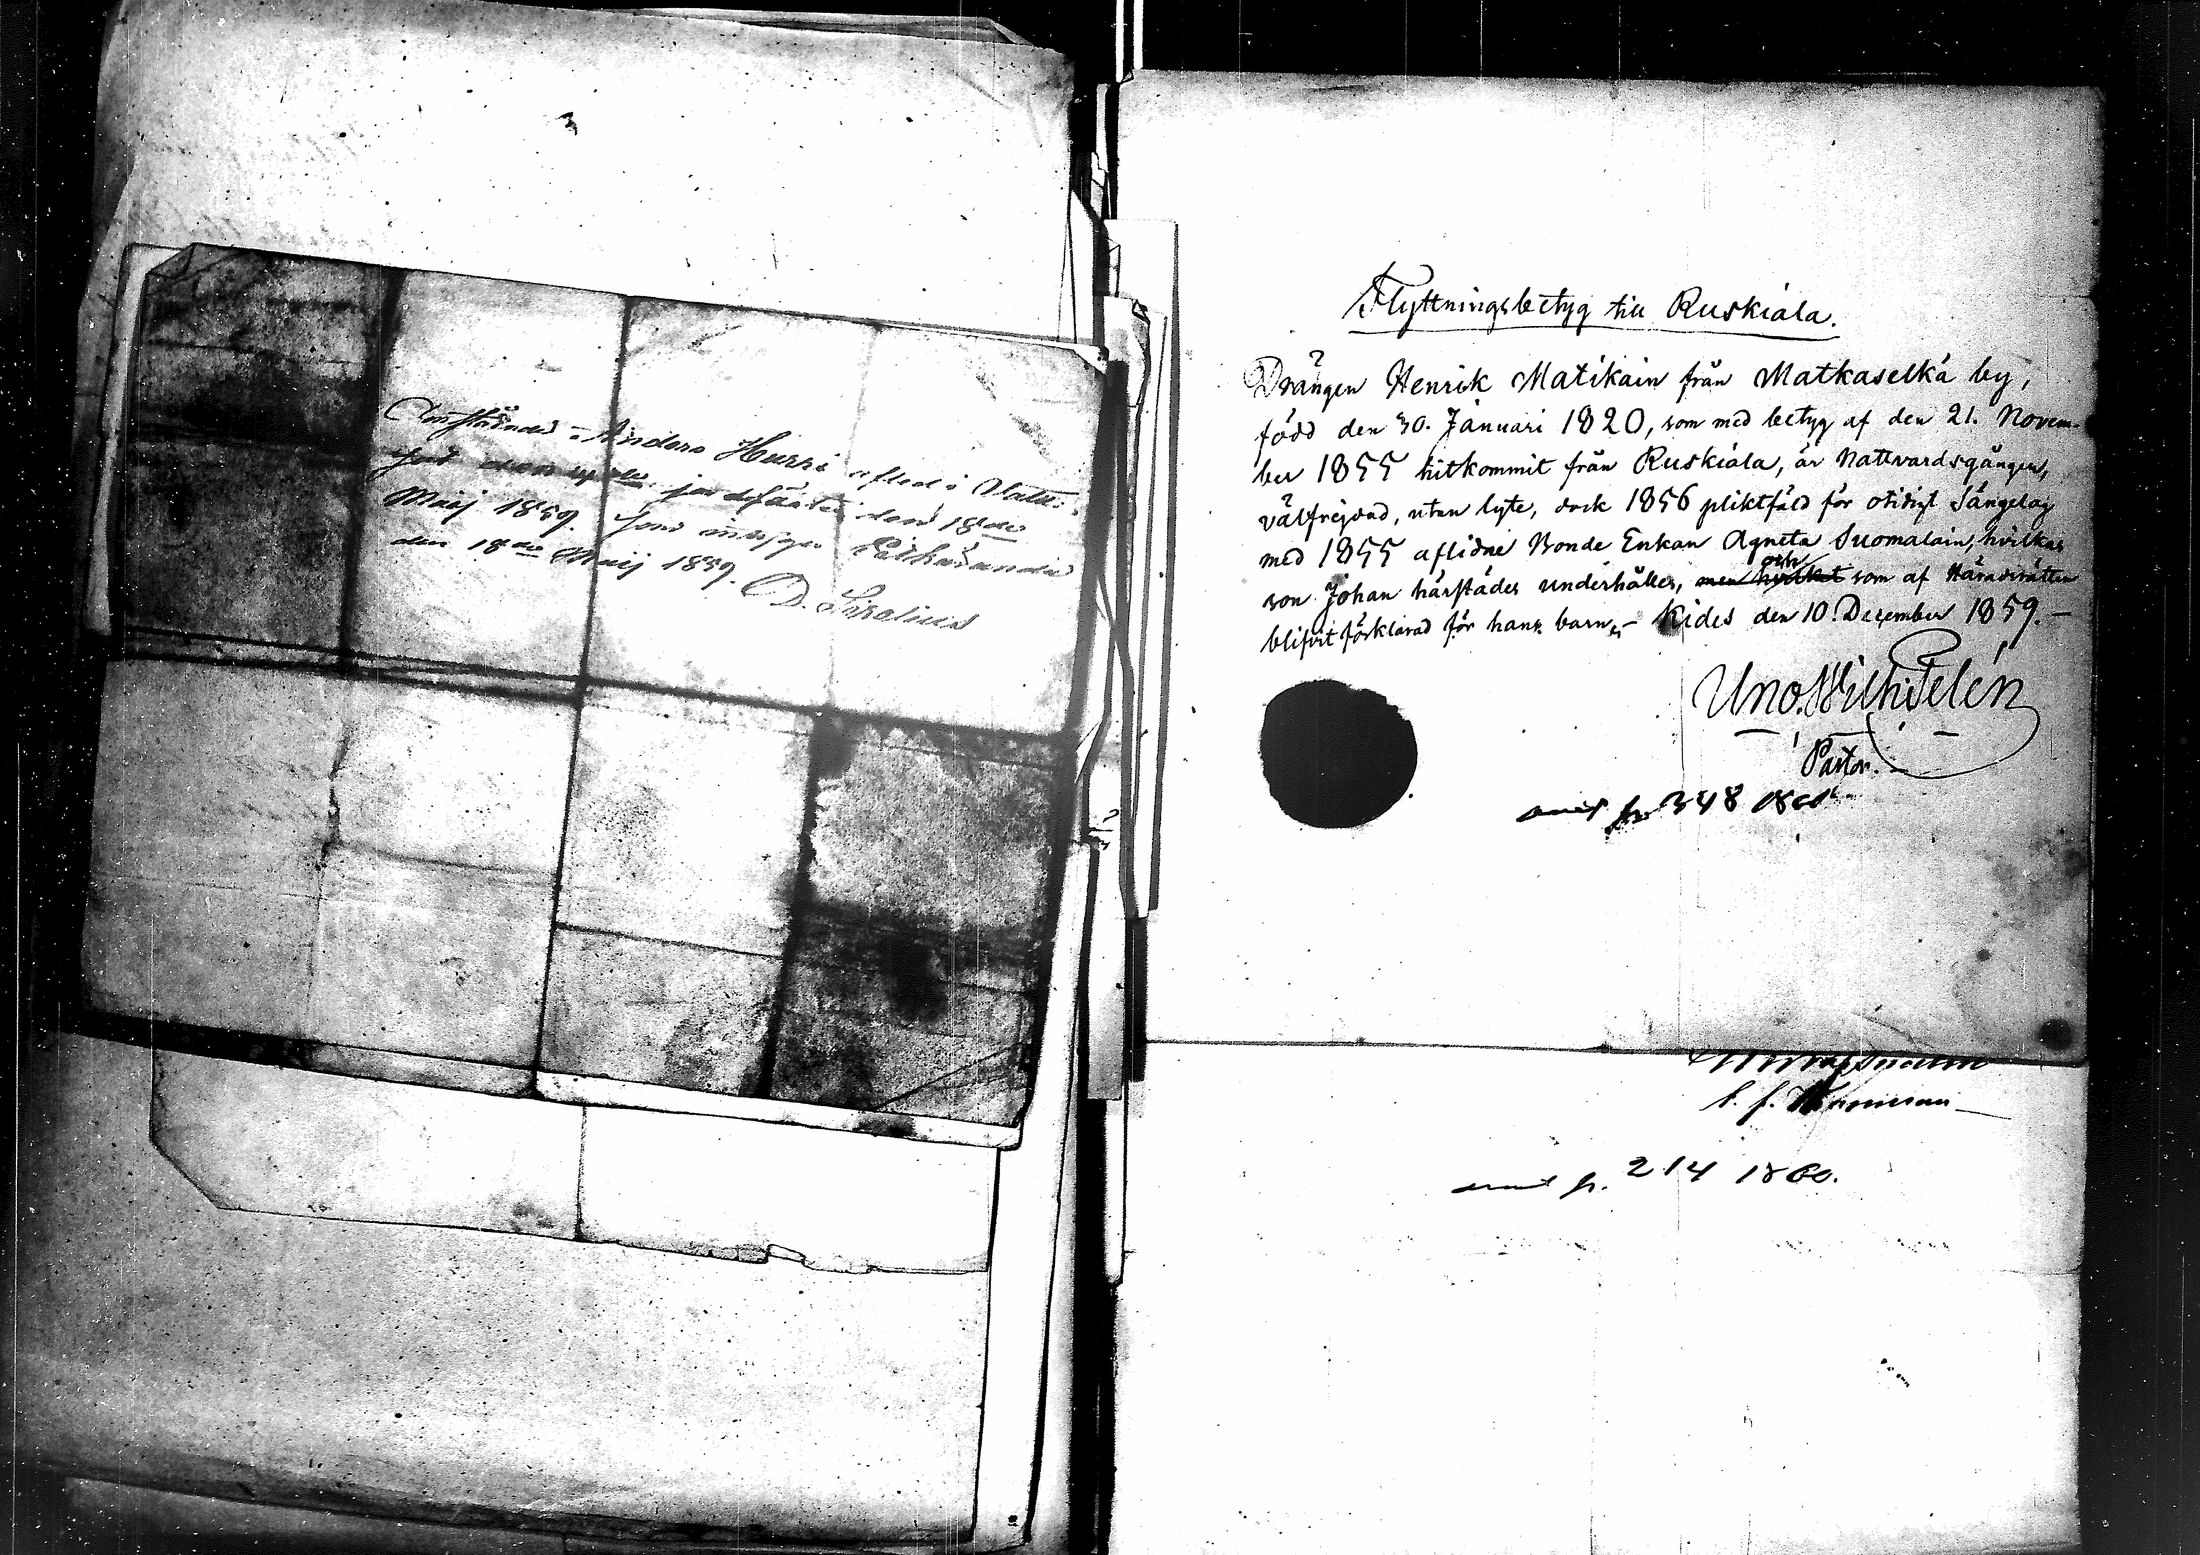 Anders Hurri afled i
jordfäste den 18de
Maij 1859. som intygar
den 18de Maij 1859.
D. Sirelius
Flyttningsbetyg till Ruskiala.
Drängen Henrik Matikain från Matkaselkä by,
född den 30. Januari 1820, som med betyg af den 21. Novem-
ber 1855 hitkommit från Ruskiala, är Nattvardsgången,
välfrejdad, utan lyte, dock 1856 pliktfäld för otidigt Sängelag
med 1855 aflidne Bonde Enkan Agneta Suomalain, hvilkas
son Johan härstädes underhålles, men hvilket och som af Häradsrätten
blifvit förklarad för hans barn, - Kides den 10. December 1859. -
Uno. Wilh. Telén
Pastor.
p. 348 1860
p. 214 1860.